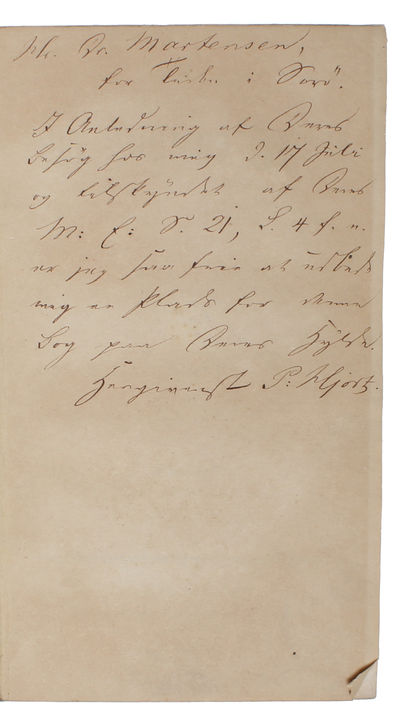 Hr. Dr. Martensen,
for Tiden i Sorö.
I Anledning af Deres
Besög hos mig d. 17 Juli
og tilskyndet af Deres
M: E: S. 21, L. 4 f. n.
er jeg saa frie at udbede
mig en Plads for denne
Bog paa Deres Hylde.
Hengivenst P: Hjort.